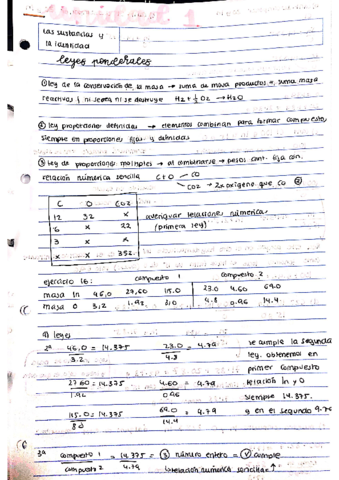 las sustancias y
la identidad
leyes ponderales
① ley de la conservación de la masa → suma de masa productos = suma masa
reactivos / ni se crea ni se destruye H2 + ½ O2 → H2O
② ley proporciones definidas → elementos combinan para formar compuesto,
siempre en proporciones fijas y definidas
③ ley de proporciones múltiples → al combinarse → pesos cont. fija con
relación númerica sencilla C + O < CO
CO2 → 2x oxígeno que CO
C O CO2
12 32 x
6 x 22
3 x x
x x 352
averiguar relaciones númerica.
(primera ley)
ejercicio 16: compuesto 1 compuesto 2
masa In 46,0 27,60 115.0 23.0 4.60 69.0
masa O 3,2 1.92 8,0 4.8 0.96 14.4
a) leyes
2ª 46.0/3.2 = 14.375 23.0/4.8 = 4.79 se cumple la segunda
ley. obtenemos en
27.60/1.92 = 14.375 4.60/0.96 = 4.79 primer compuesto
relación In y O
siempre 14.375.
115.0/8.0 = 14.375 69.0/14.4 = 4.79 y en el segundo 4.79
3ª compuesto 1/compuesto 2 = 14.375/4.79 = ③ número entero = cumple
relación númerica sencilla